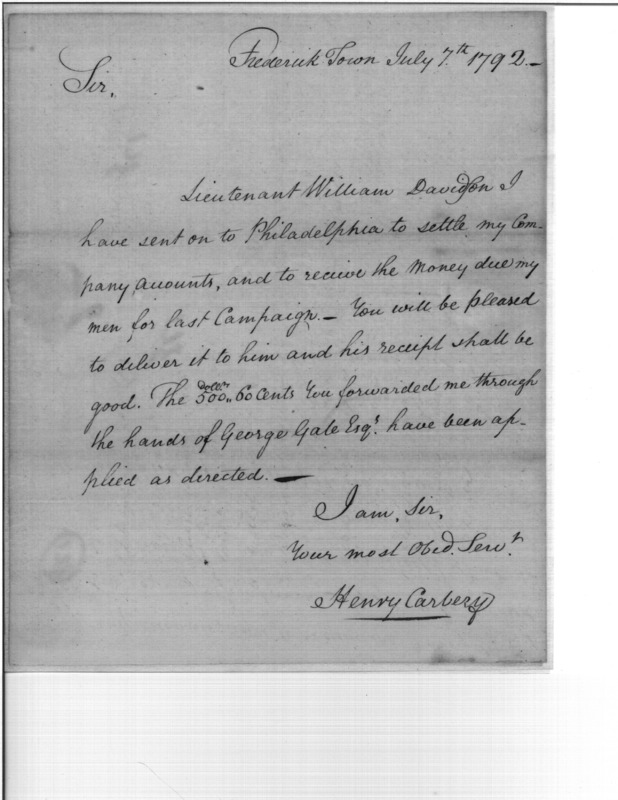 Frederick Town July 7.th 1792.—
Sir,
Lieutenant William Davidson I
have sent on to Philadelphia to settle my Com-
pany accounts, and to recieve the Money due my
men for last Campaign.— You will be pleased
to deliver it to him and his receipt shall be
good. The 500 Dollrs. 60 Cents You forwarded me through
the hands of George Gale Esqr. have been ap-
plied as directed.—
I am, Sir,
Your most Obed. Servt.
Henry Carbery